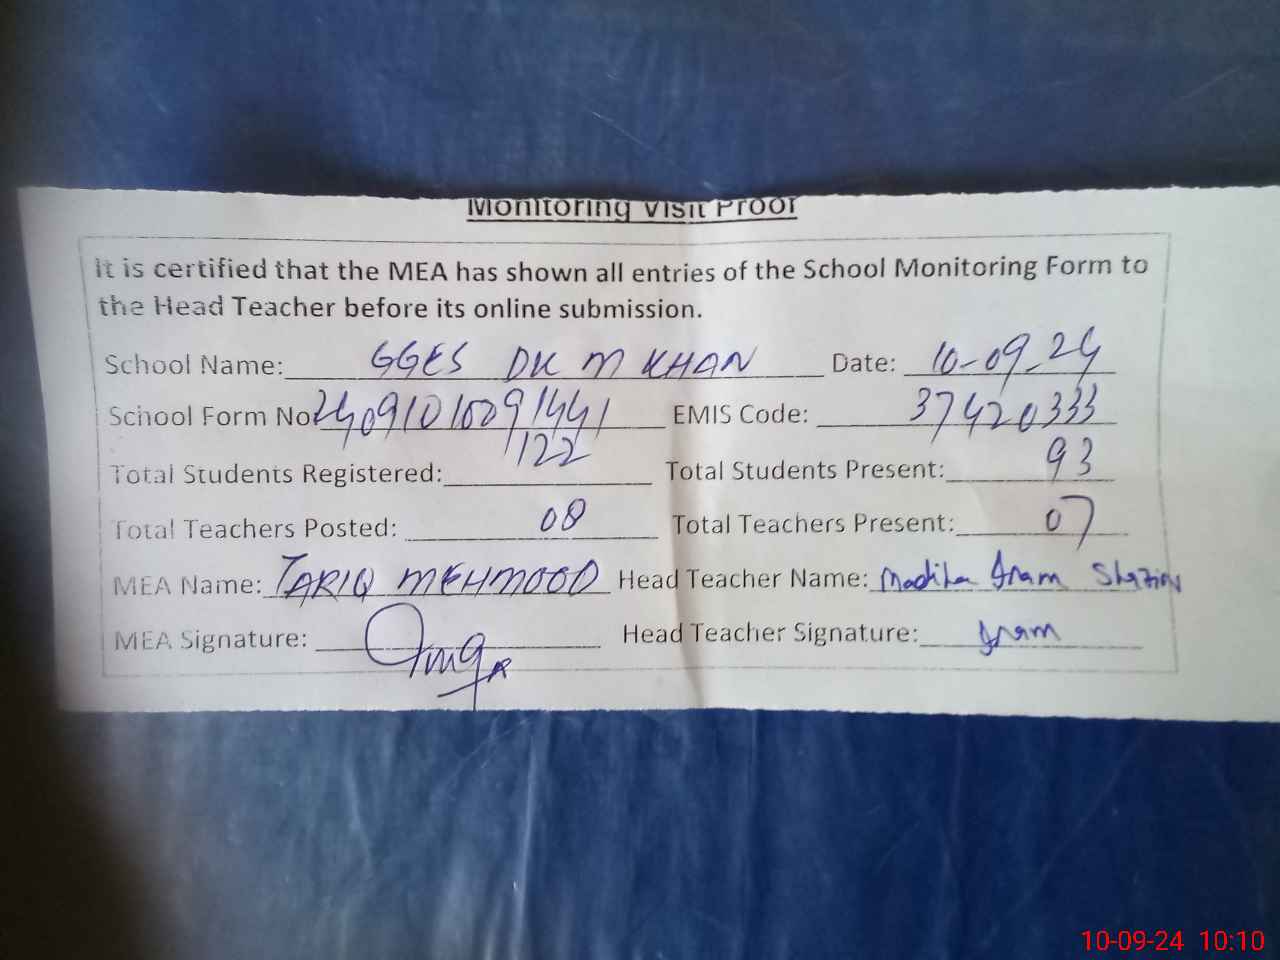 Monitoring Visit Proof
It is certified that the MEA has shown all entries of the School Monitoring Form to
the Head Teacher before its online submission.
School Name: GGES DK M KHAN Date: 10-09-24
School Form No 24091010091441 EMIS Code: 37420333
Total Students Registered: 122 Total Students Present: 93
Total Teachers Posted: 08 Total Teachers Present: 07
MEA Name: TARIQ MEHMOOD Head Teacher Name: Madiha Iram
MEA Signature: Head Teacher Signature: Iram
10-09-24 10:10